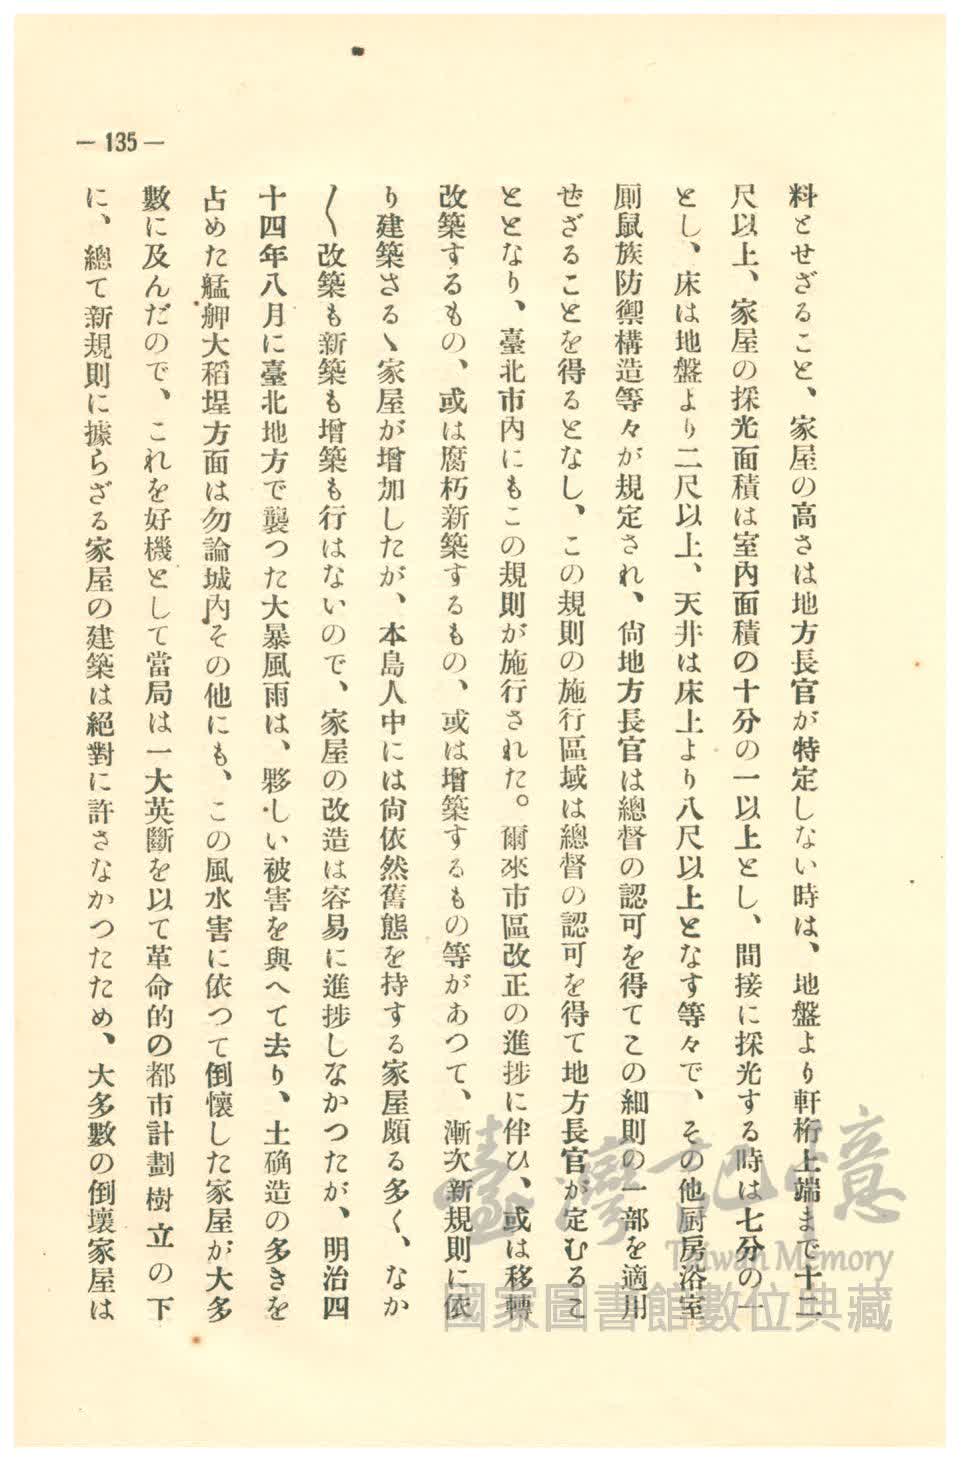 — 135 —
料とせざること、家屋の高さは地方長官が特定しない時は、地盤より軒桁上端まで十二
尺以上、家屋の採光面積は室內面積の十分の一以上とし、間接に採光する時は七分の一
とし、床は地盤より二尺以上、天井は床上より八尺以上となす等々で、その他厨房浴室
厠鼠族防禦構造等々が規定され、尙地方長官は總督の認可を得てこの細則の一部を適用
せざることを得るとなし、この規則の施行區域は總督の認可を得て地方長官が定むるこ
ととなり、臺北市內にもこの規則が施行された。爾來市區改正の進捗に伴ひ、或は移轉
改築するもの、或は腐朽新築するもの、或は增築するもの等があつて、漸次新規則に依
り建築さるゝ家屋が增加したが、本島人中には尙依然舊態を持する家屋頗る多く、なか
〱改築も新築も增築も行はないので、家屋の改造は容易に進捗しなかつたが、明治四
十四年八月に臺北地方で襲つた大暴風雨は、夥しい被害を與へて去り、土确造の多きを
占めた艋舺大稻埕方面は勿論城內その他にも、この風水害に依つて倒懷した家屋が大多
數に及んだので、これを好機として當局は一大英斷を以て革命的の都市計劃樹立の下
に、總て新規則に據らざる家屋の建築は絕對に許さなかつたため、大多數の倒壞家屋は
臺灣記憶
Taiwan Memory
國家圖書館數位典藏